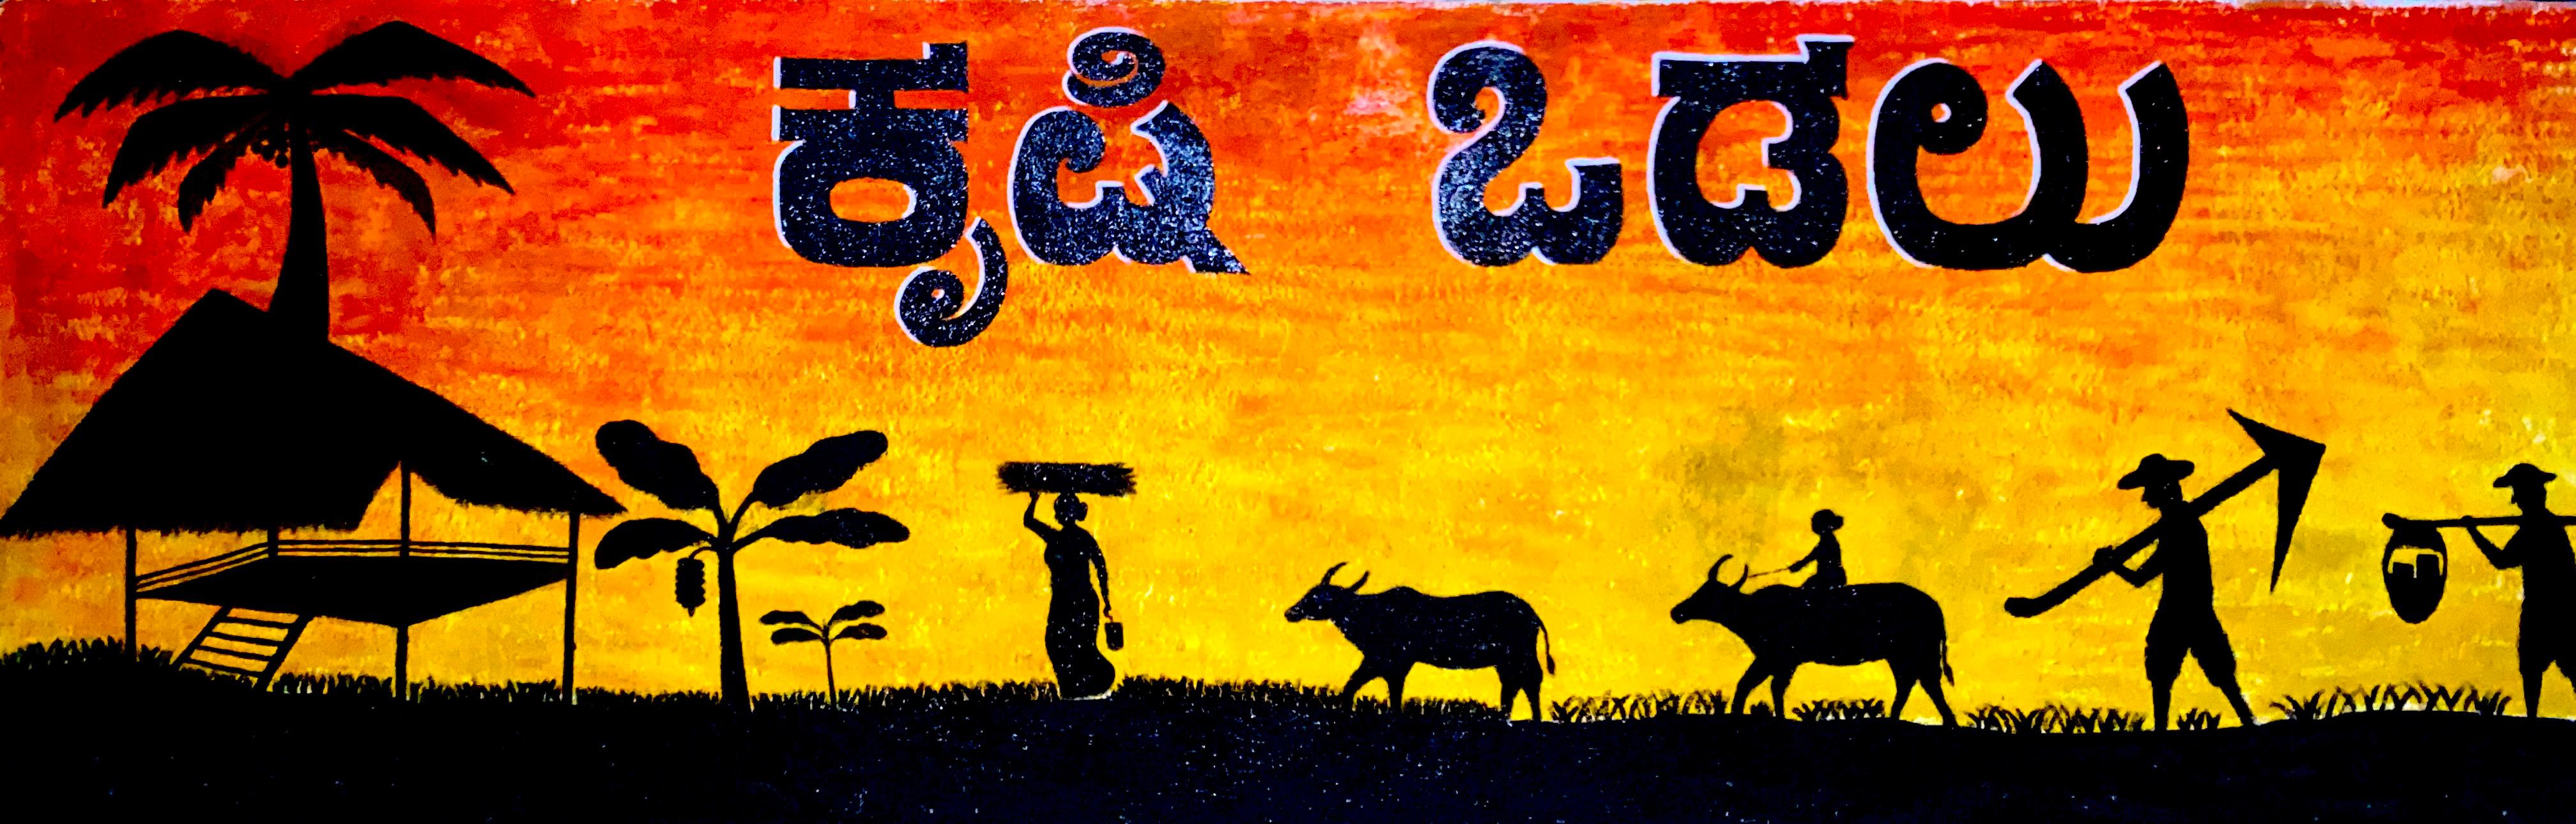 ಕೃಷಿ ಒಡಲು